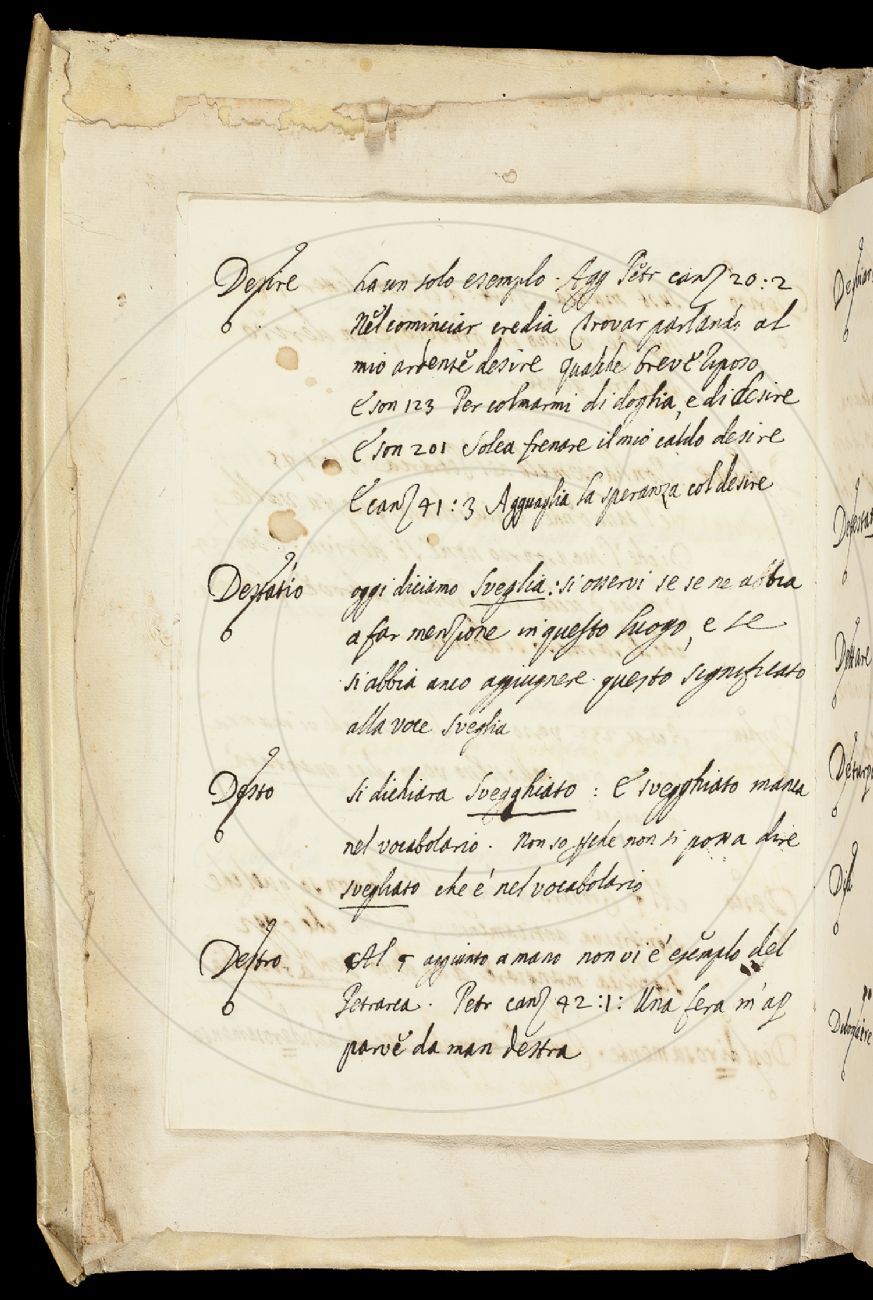 Desire ha un solo esempio. Agg Petr canz 20:2
Nel cominciar credia trovar parlando al
mio ardente desire qualche breve riposo
E son 123 Per colmarmi di doglia, e di desire
E son 201 Solea frenare il mio caldo desire
E canz 41:3 Agguaglia la speranza col desire
Destatio oggi diciamo Sveglia: si osservi se se ne abbia
a far menzione in questo luogo, e se
si abbia anco aggiugnere questo significato
alla voce Sveglia
Desto si dichiara svegghiato: E svegghiato manca
nel vocabolario. Non so se non si possa dire
svegliato che é nel vocabolario
Destro Al § aggiunto a mano non vi é esempio del
Petrarca. Petr canz 42:1: Una fera m'ap
parve da man destra
Destare